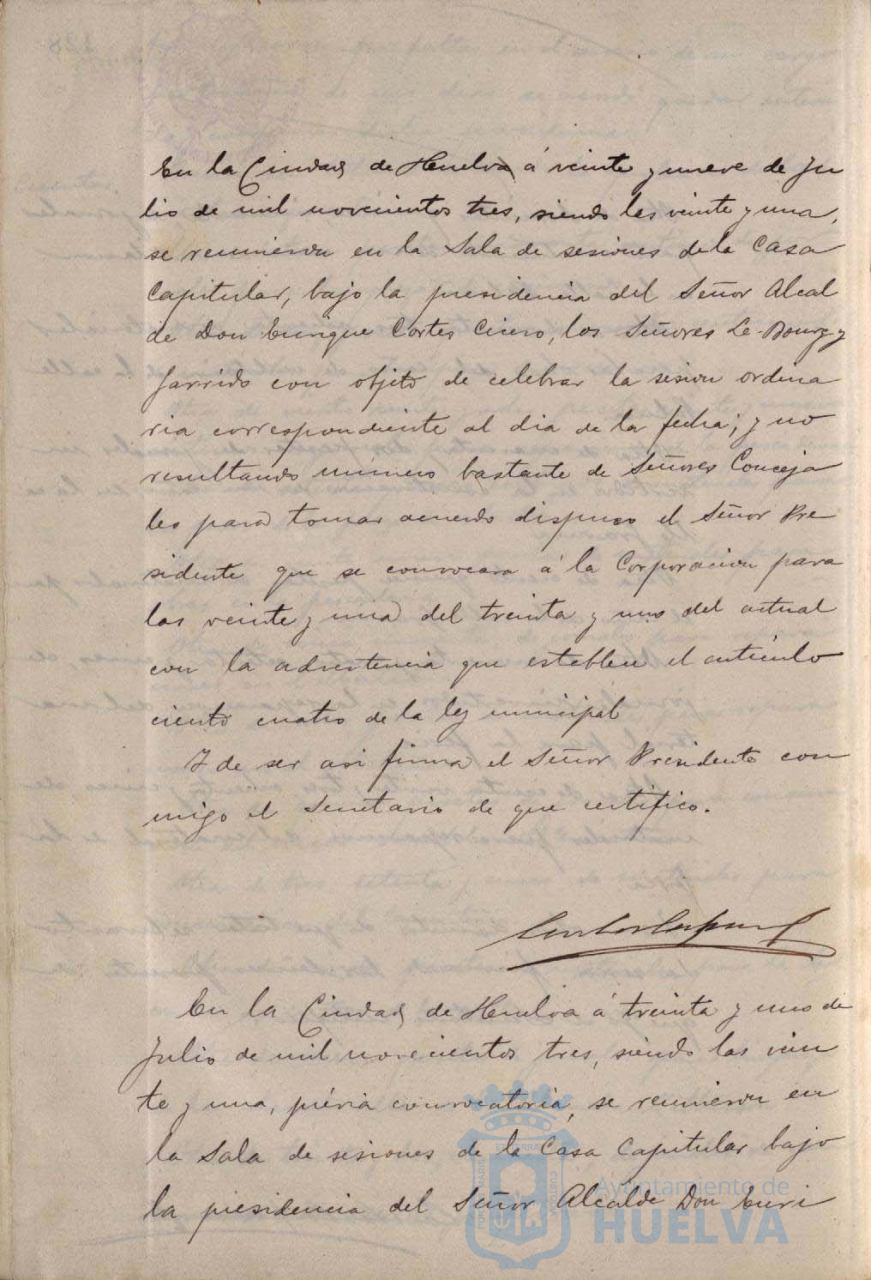 En la Ciudad de Huelva á veinte y nueve de Ju
lio de mil novecientos tres, siendo las veinte y una,
se reunieron en la Sala de sesiones de la Casa
Capitular, bajo la presidencia del Señor Alcal
de Don Enrique Cortes Cicero, los Señores Le-Bourg y
Garrido con objeto de celebrar la sesion ordina
ria correspondiente al dia de la fecha; y no
resultando número bastante de Señores Conceja
les para tomar acuerdo dispuso el Señor Pre
sidente que se convocara á la Corporacion para
las veinte y una del treinta y uno del actual
con la advertencia que establece el artículo
ciento cuatro de la ley municipal
Y de ser asi firma el Señor Presidente con
migo el Secretario de que certifico.
En la Ciudad de Huelva á treinta y uno de
Julio de mil novecientos tres, siendo las vein
te y una, prévia convocatoria, se reunieron en
la Sala de sesiones de la Casa Capitular bajo
la presidencia del Señor Alcalde Don Enri
Ayuntamiento de
HUELVA